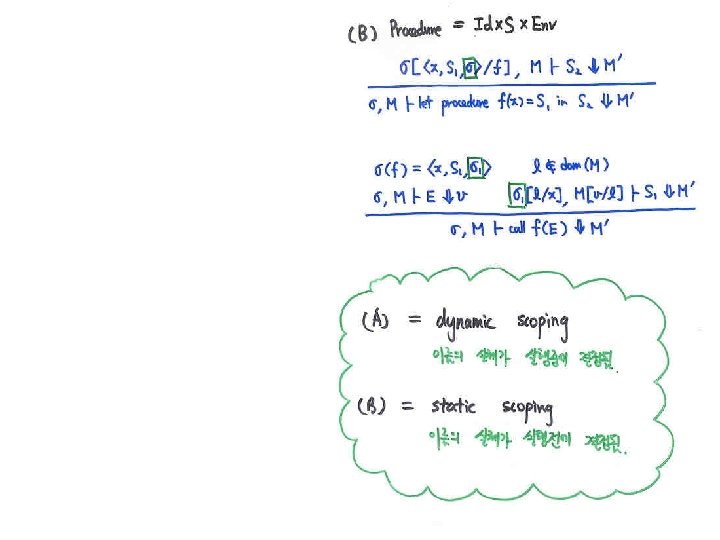 (B) Procedure = Id×S×Env
σ[<x, S₁, σ>/f], M ⊢ S₂ ⇓ M′
σ, M ⊢ let procedure f(x)=S₁ in S₂ ⇓ M′
σ(f) = <x, S₁, σ₁> ℓ ∉ dom(M)
σ, M ⊢ E ⇓ v σ₁[ℓ/x], M[v/ℓ] ⊢ S₁ ⇓ M′
σ, M ⊢ call f(E) ⇓ M′
(A) = dynamic scoping
이름의 실체가 실행중에 결정됨.
(B) = static scoping
이름의 실체가 실행전에 결정됨.